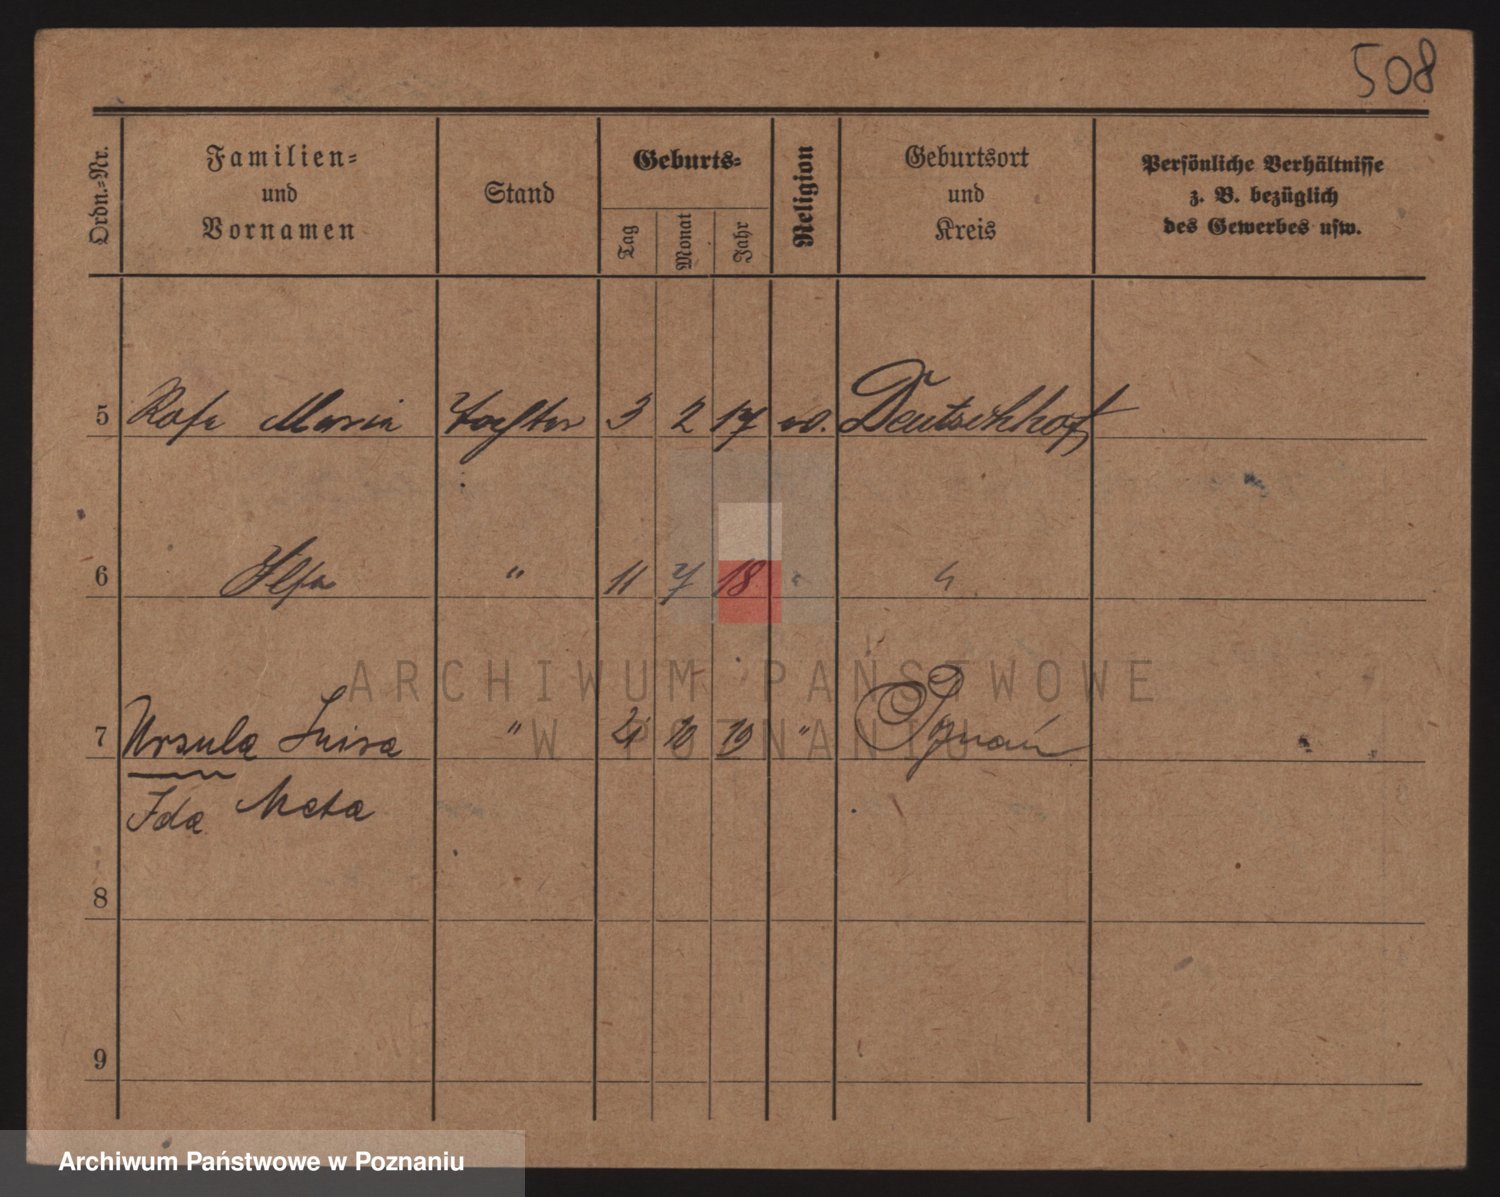 508
Ordn.-Nr.
Familien-
und
Vornamen
Stand
Geburts-
Tag Monat Jahr
Religion
Geburtsort
und
Kreis
Persönliche Verhältnisse
z. B. bezüglich
des Gewerbes usw.
5 Rosa Maria Tochter 3 2 17 ev. Deutschhof
6 Ilse " 11 7 18 " "
ARCHIWUM PAŃSTWOWE
W POZNANIU
7 Ursula Luisa " 4 10 19 " Poznań
Ida Meta
8
9
Archiwum Państwowe w Poznaniu